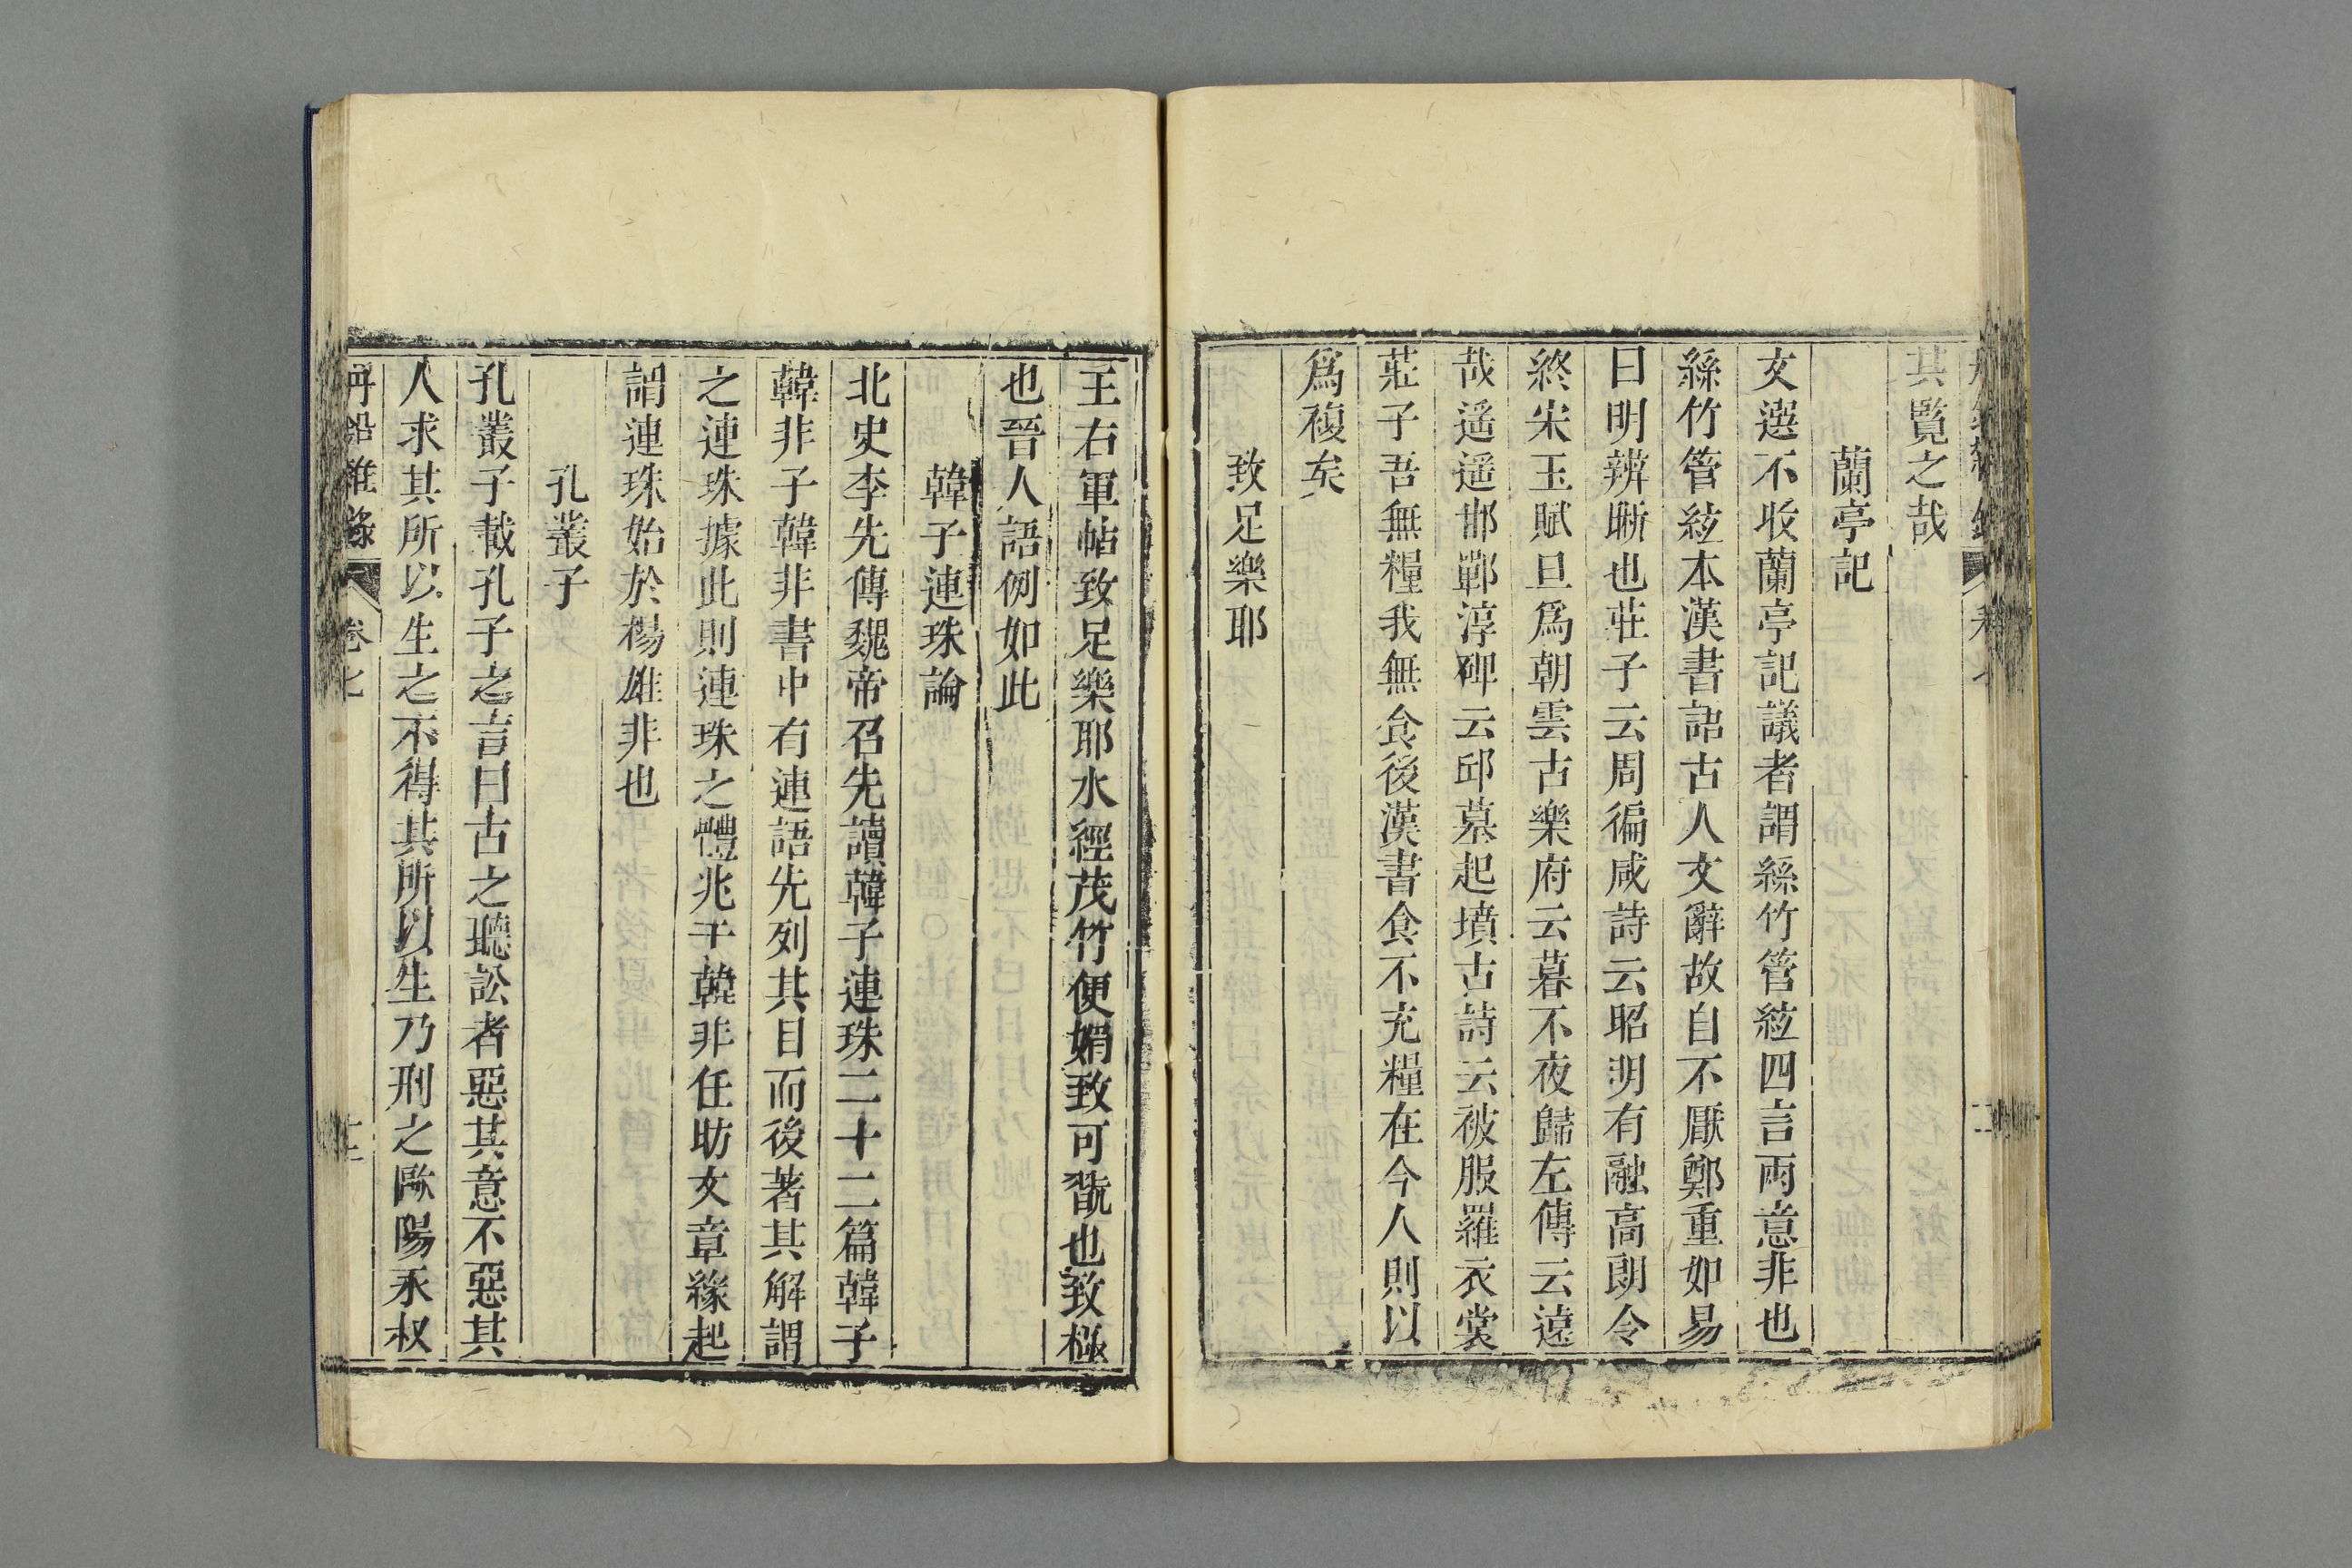 其覧之哉
蘭亭記
文選不收蘭亭記議者謂絲竹管絃四言兩意非也
絲竹管絃本漢書語古人文辭故自不厭鄭重如易
曰明辨晣也莊子云周徧咸詩云昭明有融高朗令
終宋玉賦旦為朝雲古樂府云暮不夜歸左傳云遠
哉遥遥邯鄲淳碑云邱墓起墳古詩云被服羅衣裳
莊子吾無糧我無食後漢書食不充糧在今人則以
爲複矣
致足樂耶
王右軍帖致足樂耶水經茂竹便娟致可翫也致極
也晉人語例如此
韓子連珠論
北史李先傳魏帝召先讀韓子連珠二十二篇韓子
韓非子韓非書中有連語先列其目而後著其解謂
之連珠據此則連珠之體兆于韓非任昉文章緣起
謂連珠始於楊雄非也
孔叢子
孔叢子載孔子之言曰古之聽訟者惡其意不惡其
人求其所以生之不得其所以生乃刑之歐陽永叔
丹鉛雜錄 卷七